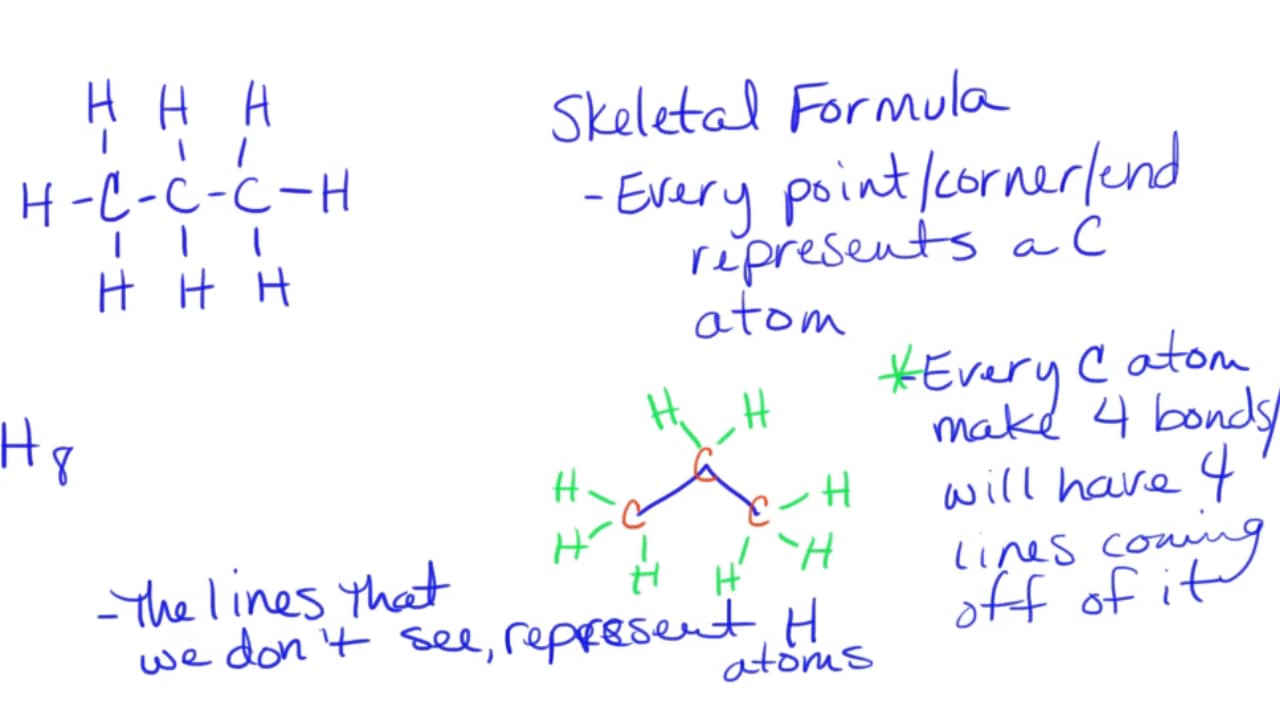 H H H
H-C-C-C-H
H H H
H8
Skeletal Formula
- Every point/corner/end
represents a C
atom
*-Every C atom
make 4 bonds/
will have 4
lines coming
off of it
H H
C
H C C H
H H
H H
- The lines that
we don't see, represent H
atoms